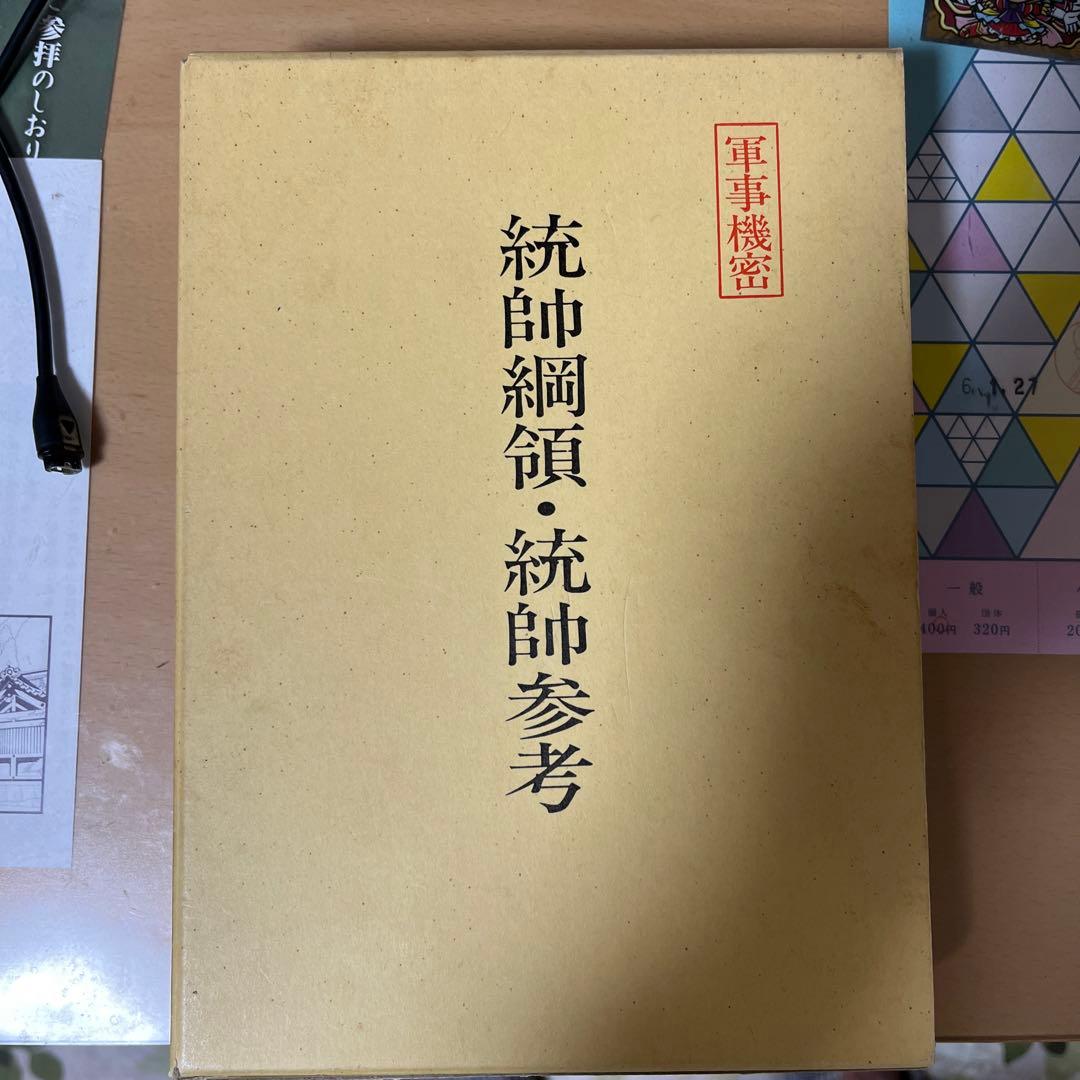 軍事機密
統帥綱領・統帥参考
参拝のしおり
6. 1.21
一般
個人
団体
400円
320円
20